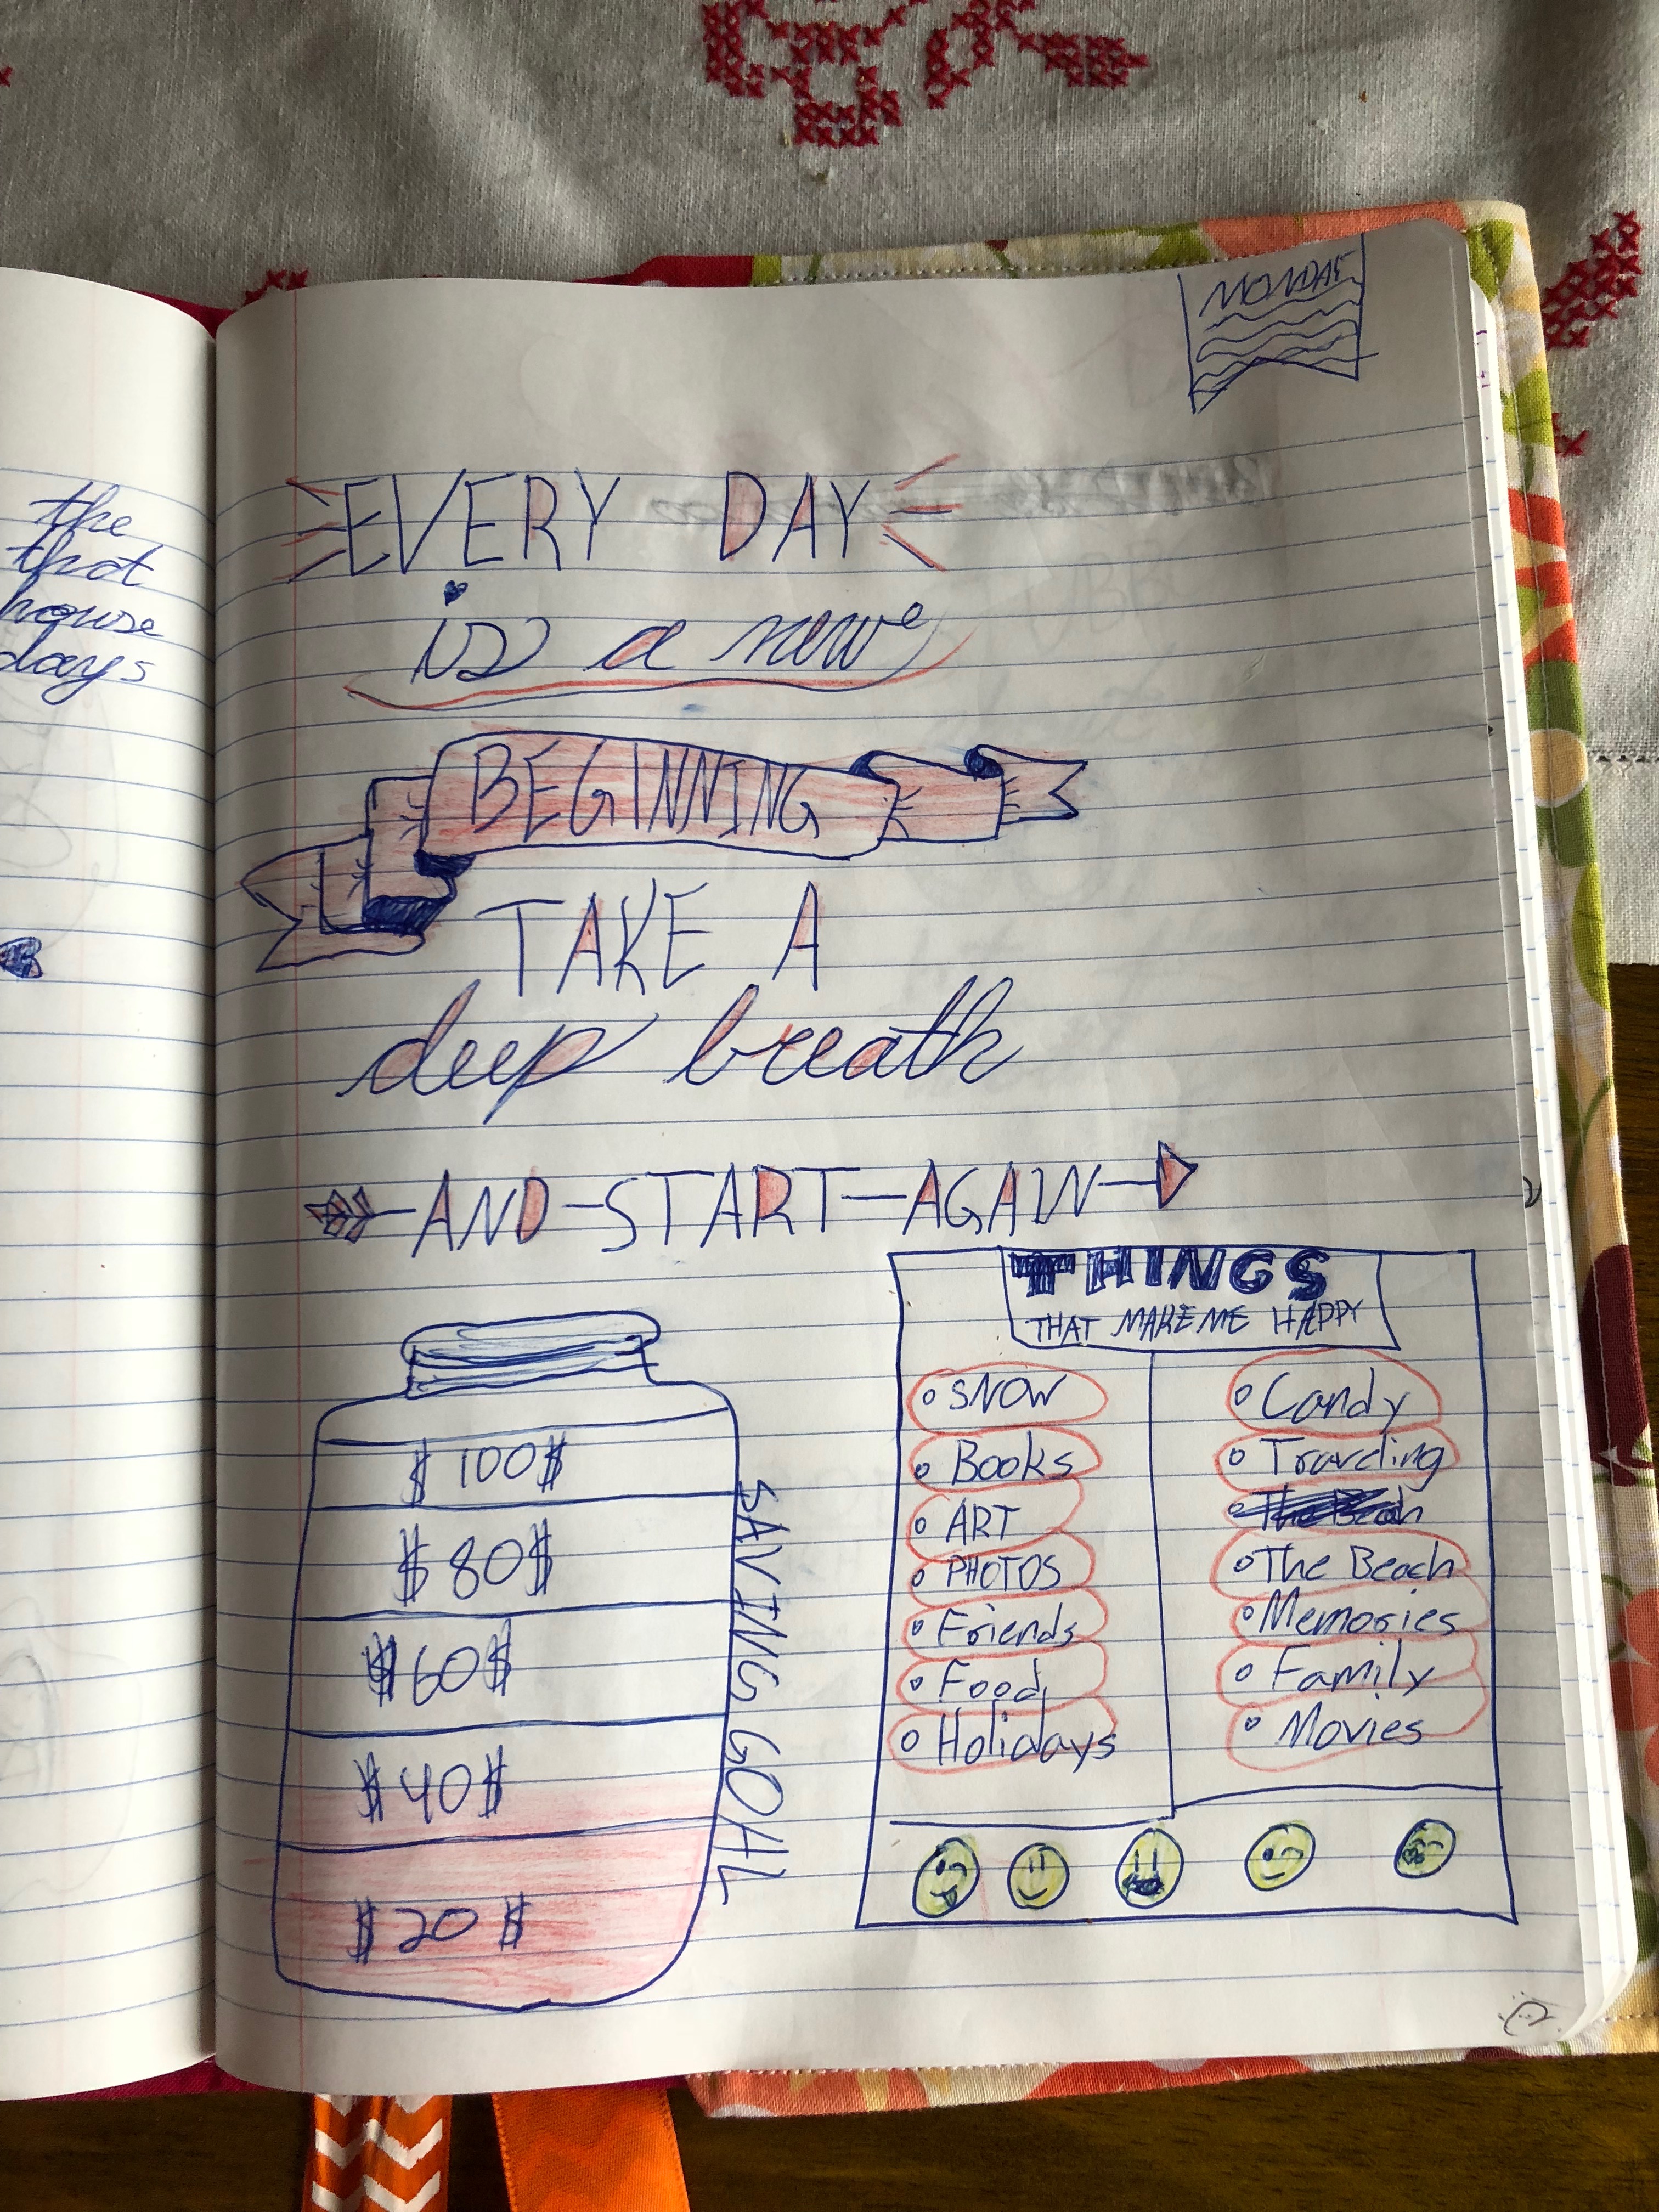 the
that
house
days
MONDAY
EVERY DAY
is a new
BEGINNING
TAKE A
deep breath
AND START AGAIN
$ 100 $
$ 80 $
$ 60 $
$ 40 $
$ 20 $
SAVING GOAL
THINGS
THAT MAKE ME HAPPY
SNOW
Books
ART
PHOTOS
Friends
Food
Holidays
Candy
Traveling
The Beach
Memories
Family
Movies